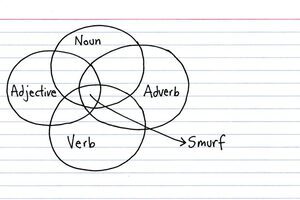 Noun
Adjective
Adverb
Verb
Smurf